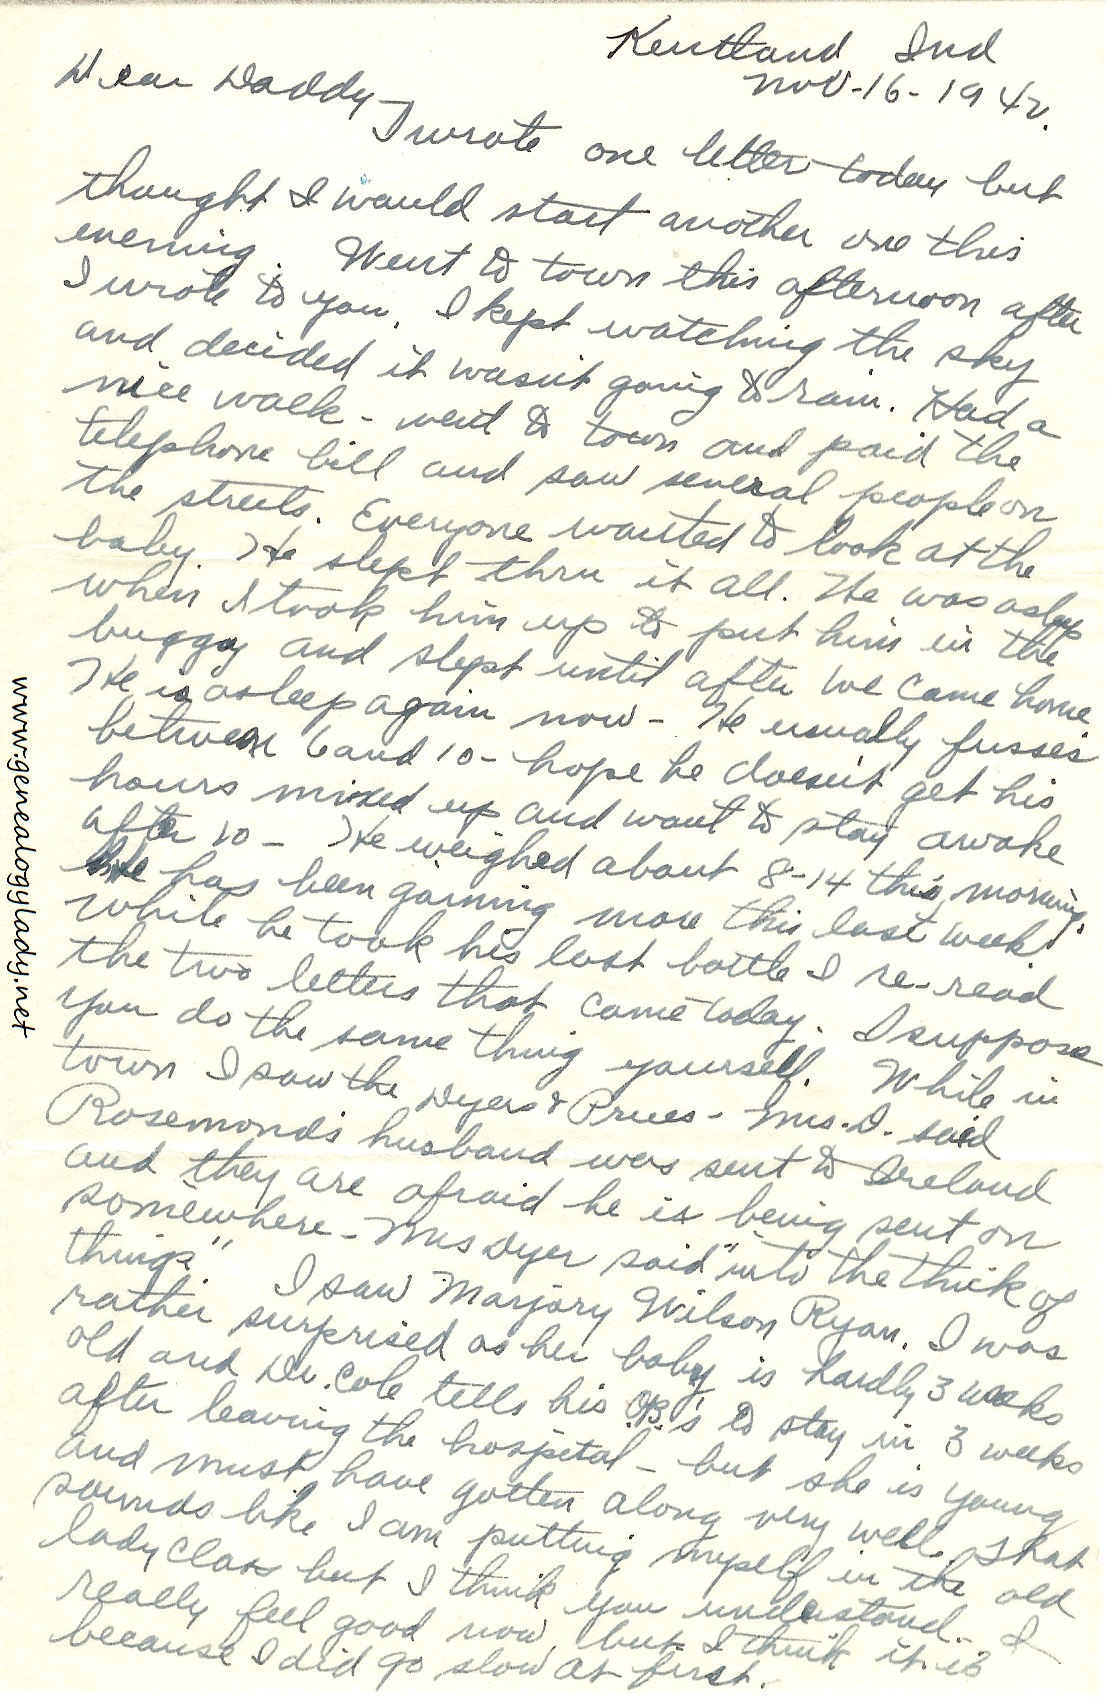 Kentland Ind
Nov-16-1942.
Dear Daddy-
I wrote one letter today but
thought I would start another one this
evening. Went to town this afternoon after
I wrote to you. I kept watching the sky
and decided it wasn't going to rain. Had a
nice walk - went to town and paid the
telephone bill and saw several people on
the streets. Everyone wanted to look at the
baby. He slept thru it all. He was asleep
when I took him up to put him in the
buggy and slept until after we came home
He is asleep again now - He usually fusses
between 6 and 10 - hope he doesn't get his
hours mixed up and want to stay awake
after 10 - He weighed about 8-14 this morning.
He has been gaining more this last week.
While he took his last bottle I re-read
the two letters that came today. I suppose
you do the same thing yourself. While in
town I saw the Dyers & Prues - Mrs. D. said
Rosemond's husband was sent to Ireland
and they are afraid he is being sent on
somewhere - Mrs Dyer said "into the thick of
things" I saw Marjory Wilson Ryan. I was
rather surprised as her baby is hardly 3 weeks
old and Dr. Cole tells his OB's to stay in 3 weeks
after leaving the hospital - but she is young
and must have gotten along very well. That
sounds like I am putting myself in the old
lady class but I think you understand. I
really feel good now, but I think it is
because I did go slow at first.
www.genealogylady.net